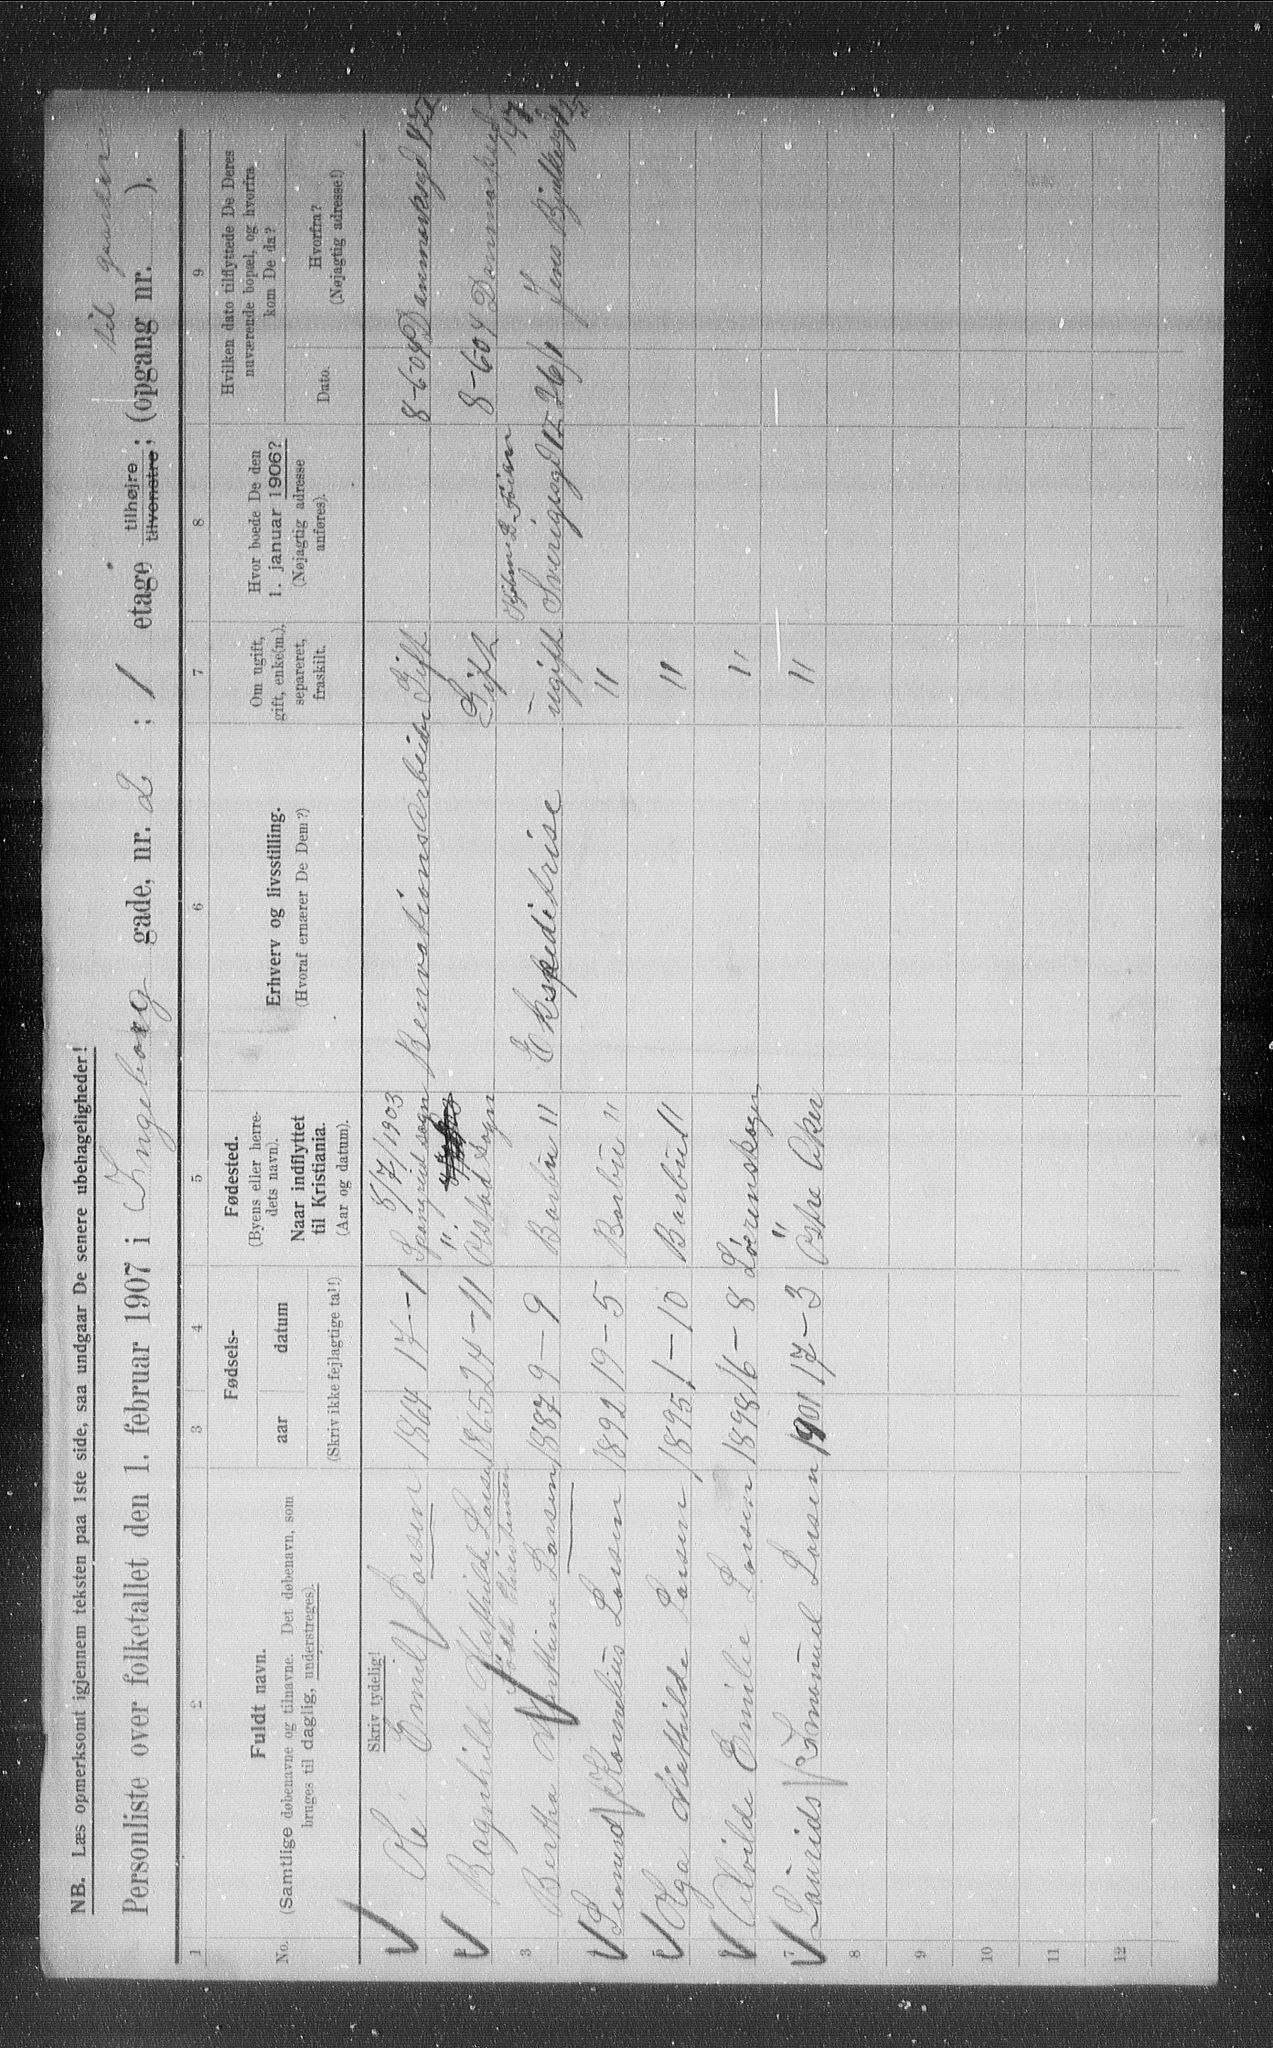 NB. Læs opmerksomt igjennem teksten paa 1ste side, saa undgaar De senere ubehageligheder!
til gaarden
Personliste over folketallet den 1. februar 1907 i Ingeborg gade, nr. 2 ; 1 etage tilhøjre tilvenstre ; (opgang nr. ).
1 2 3 4 5 6 7 8 9
No.
Fuldt navn.
(Samtlige døbenavne og tilnavne. Det døbenavn, som
bruges til daglig, understreges).
Fødsels-
aar datum
(Skriv ikke fejlagtige tal!)
Fødested.
(Byens eller herre-
dets navn).
Naar indflyttet
til Kristiania.
(Aar og datum).
Erhverv og livsstilling.
(Hvoraf ernærer De Dem?)
Om ugift,
gift, enke(m.),
separeret,
fraskilt.
Hvor boede De den
1. januar 1906?
(Nøjagtig adresse
anføres).
Hvilken dato tilflyttede De Deres
nuværende bopæl, og hvorfra
kom De da?
Dato.
Hvorfra?
(Nøjagtig adresse!)
Skriv tydelig!
8/7/1903
Ole Emil Larsen 1864 17--1 Spangreid sogn Renovationsarbeider Gift 8-604 Danmarksgd
"
2 Ragnhild Mathilde Larsen 1865 24-11 Sogn Gift 8-604
Født Christensen
3 Bertha Larsen 1887 9-9 Barbu " Ekspeditrise ugift Sverigesgd 12 26/1 Jens Bjelkesgd
4 Leonard Kornelius Larsen 1892 19-5 Barbu " "
5 Aga Mathilde Larsen 1895 1-10 Barbu " "
6 Alvilde Emilie Larsen 1898 16-8 Lørenskogen "
"
7 Laurids Imanuel Larsen 1901 17-3 Østre Aker "
8
9
10
11
12